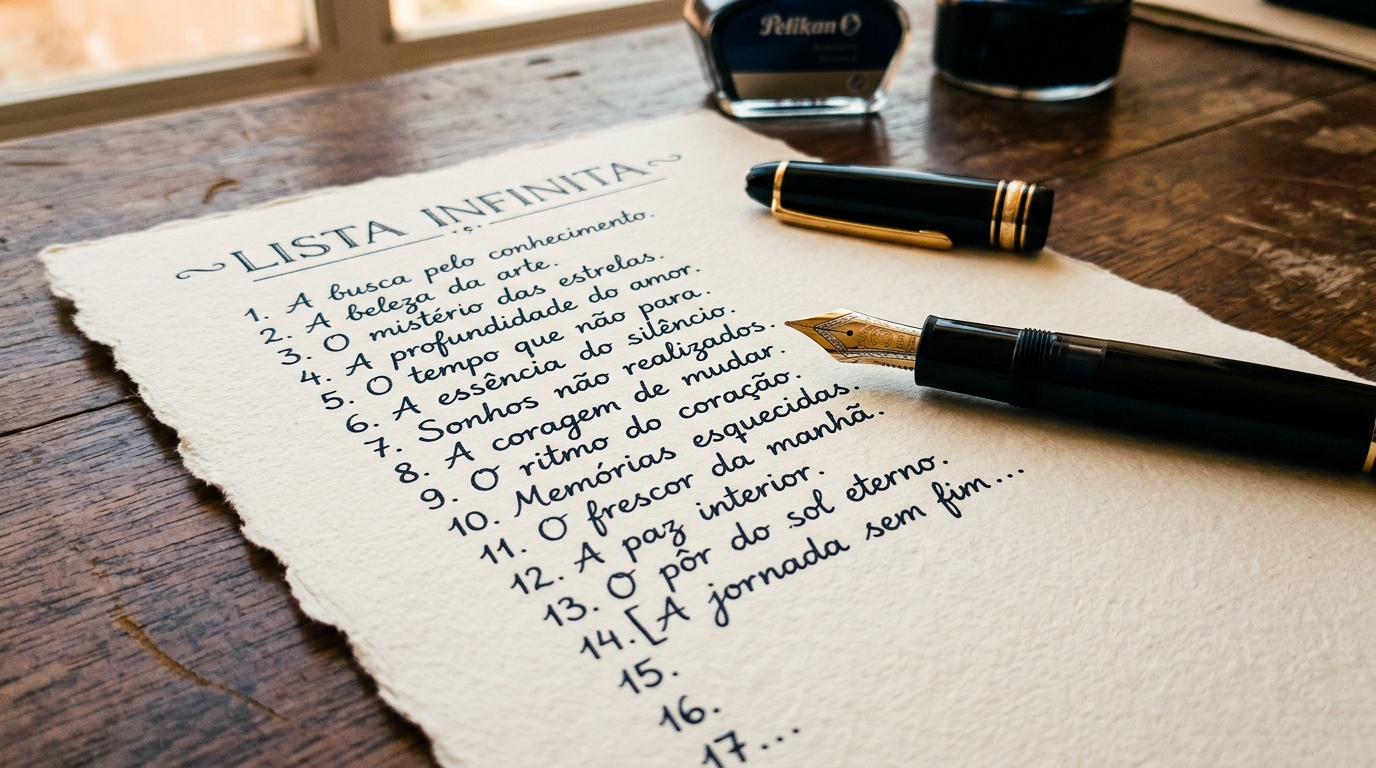 Pelikan
~LISTA INFINITA~
1. A busca pelo conhecimento.
2. A beleza da arte.
3. O mistério das estrelas.
4. A profundidade do amor.
5. O tempo que não para.
6. A essência do silêncio.
7. Sonhos não realizados.
8. A coragem de mudar.
9. O ritmo do coração.
10. Memórias esquecidas.
11. O frescor da manhã.
12. A paz interior.
13. O pôr do sol eterno.
14. [A jornada sem fim...
15.
16.
17...